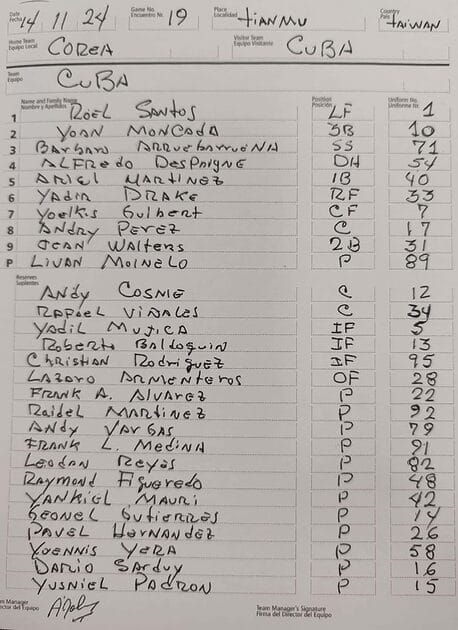 Date Fecha 14/11/24 Game No. Encuentro Nr. 19 Place Localidad tianmu Country Pais taiwan
Home Team Equipo Local Corea Visitor Team Equipo Visitante CUBA
Team Equipo CUBA
Name and Family Name Nombre y Apellidos Position Posición Uniform No. Uniforme Nr.
1 Roel Santos LF 1
2 Yoan Moncada 3B 10
3 Barbaro Arruebarruena SS 71
4 Alfredo Despaigne DH 54
5 Ariel Martinez 1B 40
6 Yadir Drake RF 33
7 Yoelkis Guibert CF 7
8 Andry Perez C 17
9 Jean Walters 2B 31
P Livan Moinelo P 89
Reserves Suplentes
Andy Cosme C 12
Rafael Viñales C 34
Yadil Mujica IF 5
Roberto Baldoquin IF 13
Christian Rodriguez IF 95
Lazaro Armenteros OF 28
Frank A. Alvarez P 22
Raidel Martinez P 92
Andy Vargas P 79
Frank L. Medina P 91
Leodan Reyes P 82
Raymond Figueredo P 48
Yankiel Mauri P 42
Geonel Gutierres P 14
Pavel Hernandez P 26
Yoennis Yera P 58
Dario Sarduy P 16
Yusniel Padron P 15
Team Manager Director del Equipo Team Manager's Signature Firma del Director del Equipo